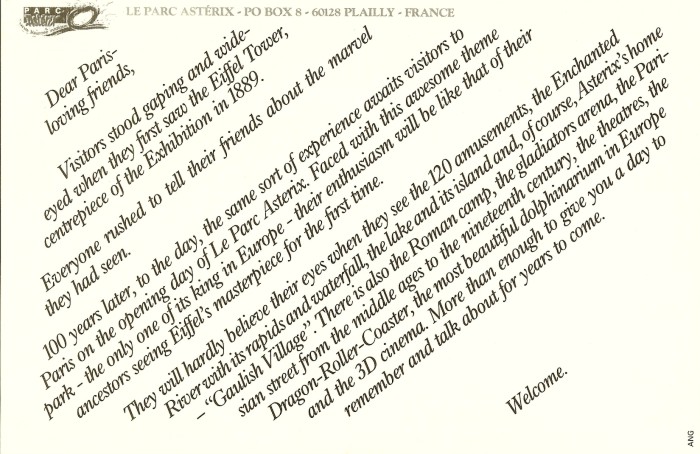 PARC
Astérix
LE PARC ASTÉRIX - PO BOX 8 - 60128 PLAILLY - FRANCE
Dear Paris-
loving friends,
Visitors stood gaping and wide-
eyed when they first saw the Eiffel Tower,
centrepiece of the Exhibition in 1889.
Everyone rushed to tell their friends about the marvel
they had seen.
100 years later, to the day, the same sort of experience awaits visitors to
Paris on the opening day of Le Parc Asterix. Faced with this awesome theme
park - the only one of its king in Europe - their enthusiasm will be like that of their
ancestors seeing Eiffel's masterpiece for the first time.
They will hardly believe their eyes when they see the 120 amusements, the Enchanted
River with its rapids and waterfall, the lake and its island and, of course, Asterix's home
– “Gaulish Village”. There is also the Roman camp, the gladiators arena, the Pari-
sian street from the middle ages to the nineteenth century, the theatres, the
Dragon-Roller-Coaster, the most beautiful dolphinarium in Europe
and the 3D cinema. More than enough to give you a day to
remember and talk about for years to come.
Welcome.
ANG